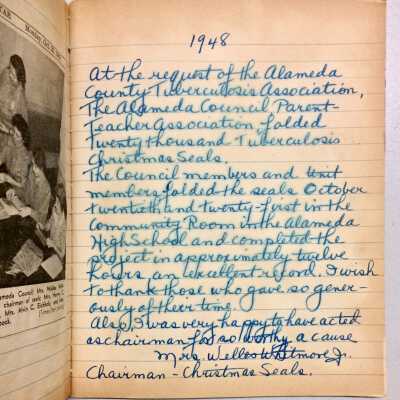 1948
At the request of the Alameda
County Tuberculosis Association,
The Alameda Council Parent-
Teacher Association folded
Twenty thousand Tuberculosis
Christmas Seals.
The Council members and Unit
members folded the seals October
twentieth and twenty-first in the
Community Room in the Alameda
High School and completed the
project in approximately twelve
hours, an excellent record. I wish
to thank those who gave so gener-
ously of their time.
Also, I was very happy to have acted
as chairman for so worthy a cause
Mrs. Welles Whitmore Jr.
Chairman - Christmas Seals.